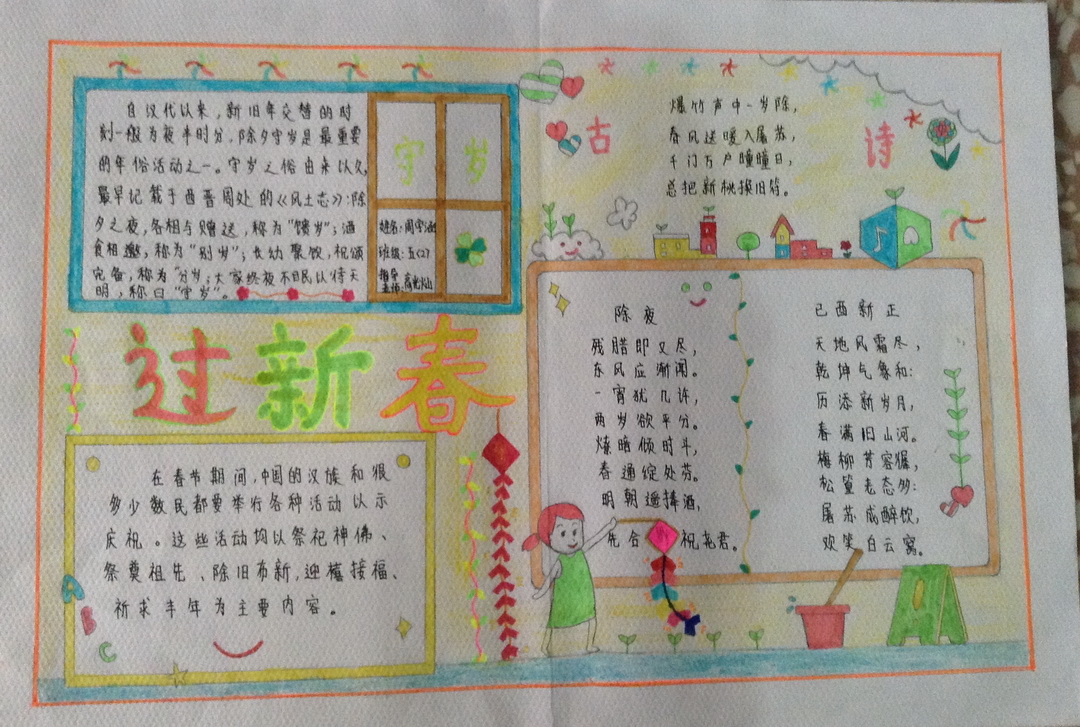 自汉代以来，新旧年交替的时
刻一般为夜半时分，除夕守岁是最重要
的年俗活动之一。守岁之俗由来以久，
最早记载于西晋周处的《风土志》：除
夕之夜，各相与赠送，称为"馈岁"；酒
食相邀，称为"别岁"；长幼聚饮，祝颂
完备，称为"分岁；大家终夜不眠以待天
明，称曰"守岁"。
守岁
姓名：周宇涵
班级：五(2)
指导
老师：
过新春
在春节期间，中国的汉族和很
多少数民都要举行各种活动以示
庆祝。这些活动均以祭祀神佛、
祭奠祖先、除旧布新，迎禧接福、
祈求丰年为主要内容。
A
B
C
古诗
爆竹声中一岁除，
春风送暖入屠苏，
千门万户曈曈日，
总把新桃换旧符。
除夜
残腊即又尽，
东风应渐闻。
一宵犹几许，
两岁欲平分。
燎暗倾时斗，
春通绽处芬。
明朝遥捧酒，
先合祝尧君。
己酉新正
天地风霜尽，
乾坤气象和：
历添新岁月，
春满旧山河。
梅柳芳容穉，
松篁老态多：
屠苏成醉饮，
欢笑白云窝。